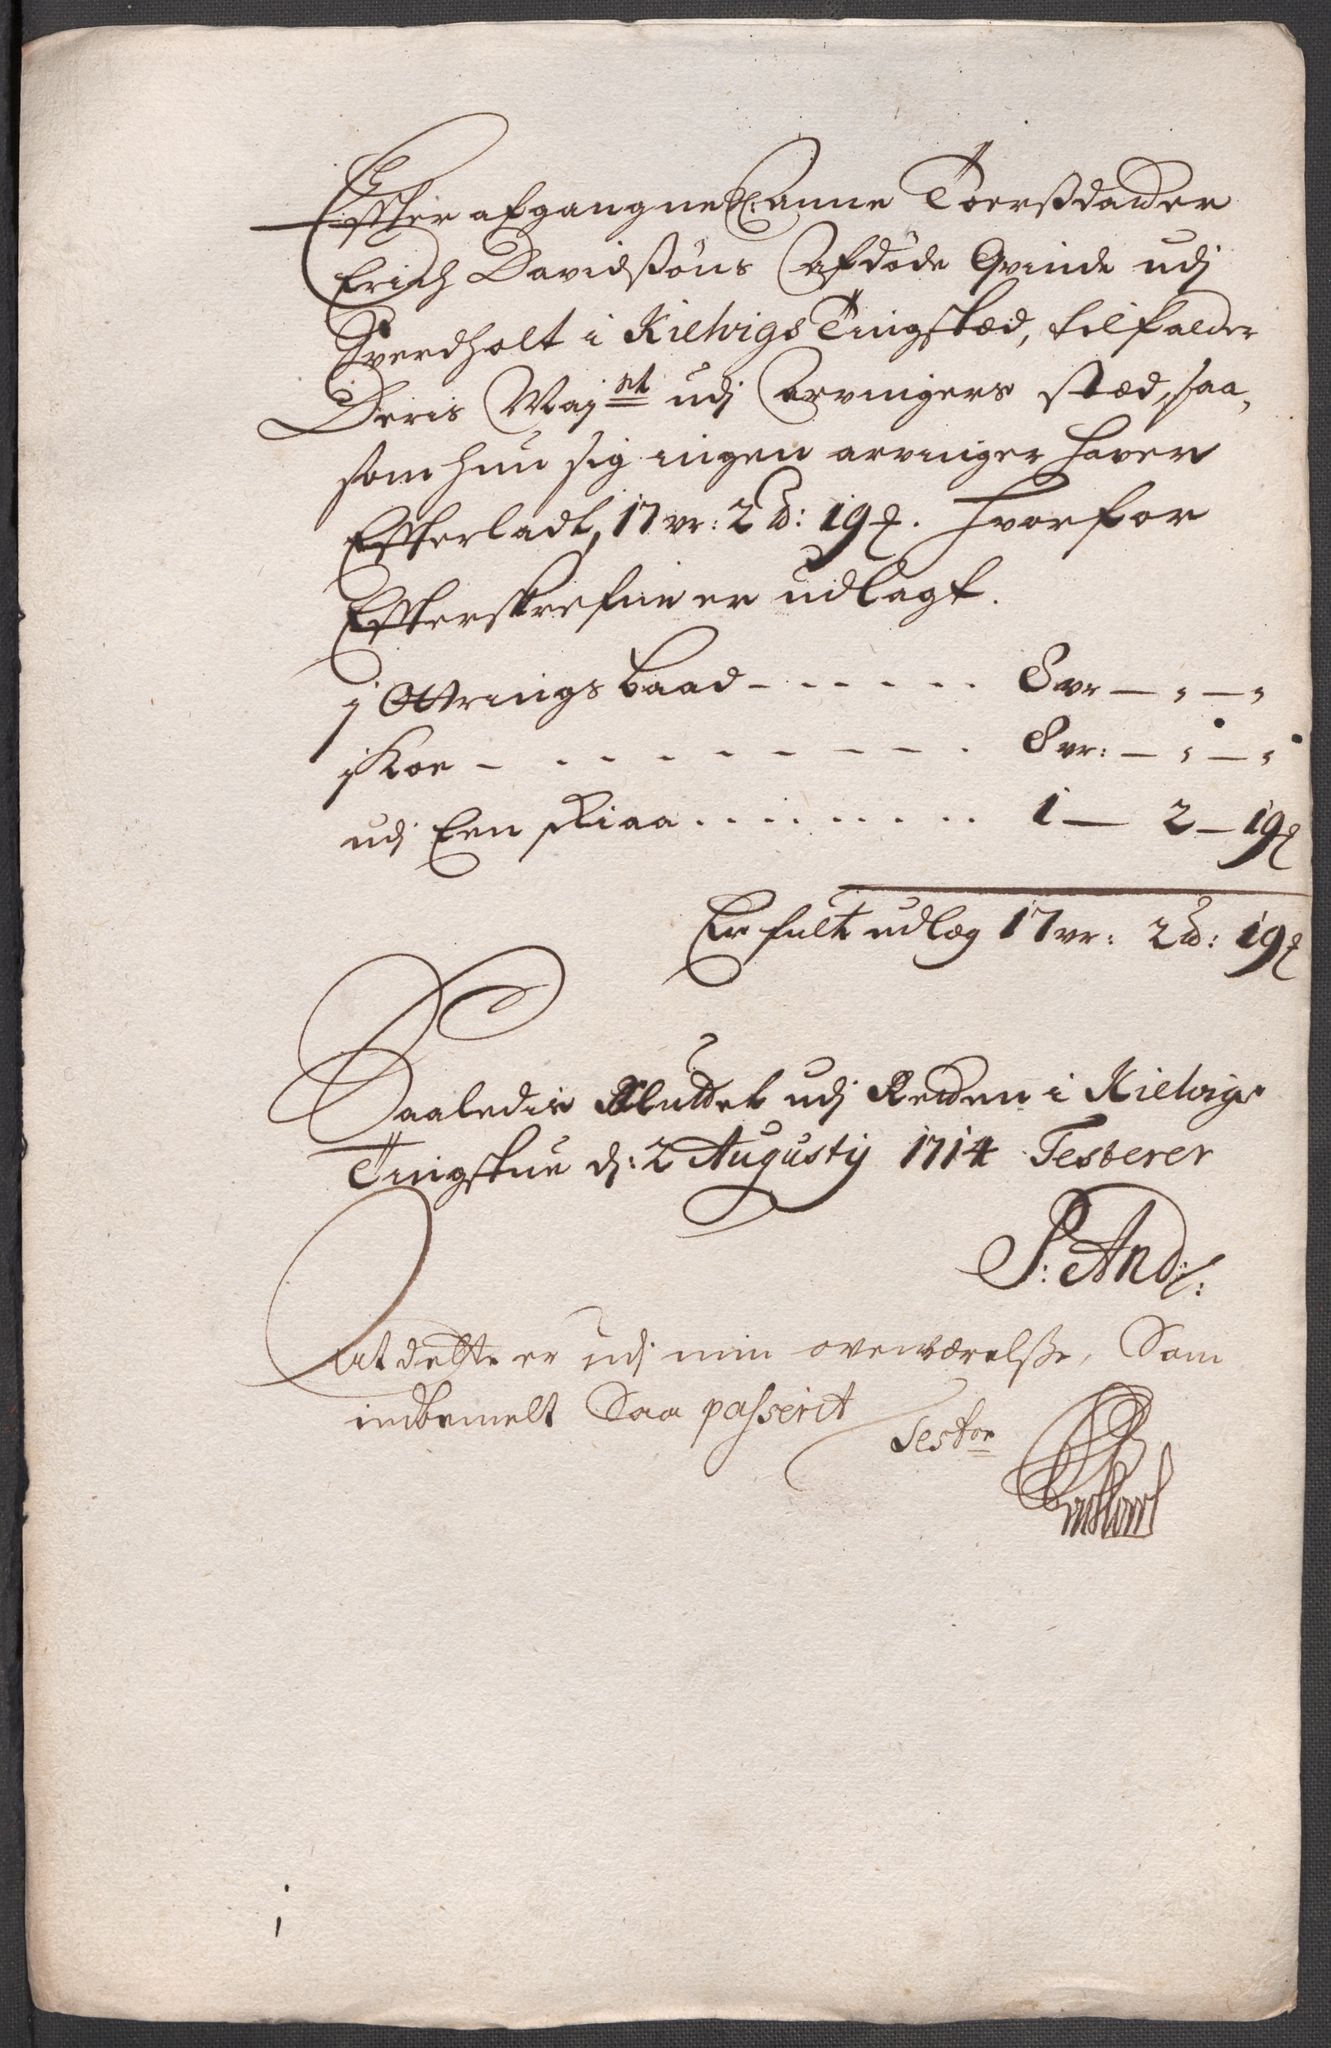 Effter afgangne Anne Toerßdatter
Erich Davidsøns Afdøde Qvinde udj
Sverdholt i Kielvigs Tingsted, tilfalder
Deris Maj.et udj Arvingers stæd, saa-
som hun sig ingen arvinger haver
Effterladt, 17 vr: 2 ℔: 19 ß. hvorfor
Effterskrefne er udlagt.
j Ottrings Baad - - - - - - 8 vr — „ — „
j Koe - - - - - - - - - 8 vr: — „ — „
udj Een skiaa . . . . . . . . . 1 — 2 — 19 ß
Er fult udlæg 17 vr: 2 ℔: 19 ß
Saaledis Sluttet udj Repden i Kielvigs
Tingstue d: 2 Augustij 1714 Testerer
P: And:
At dette er udj min overværelße, Som
indbemelt Saa passerit
Testor